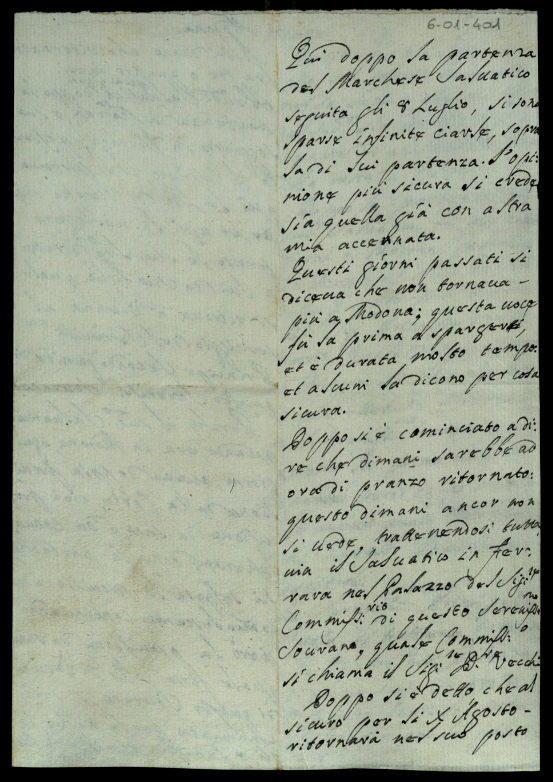 6-01-401
Qui doppo la partenza
del Marchese Saluatico
seguita gli 8 Luglio, si sono
sparse infinite ciarle, sopra
la di lui partenza. L'opi-
nione più sicura si crede
sia quella già con altra
mia accennata.
Questi giorni passati si
diceua che non tornaua -
più a Modona; questa uoce
fù la prima a spargersi,
et è durata molto tempo.
et alcuni la dicono per cosa
sicura.
Doppo si è cominciato a di-
re che dimani sarebbe ad
ora di pranzo ritornato:
questo dimani ancor non
si uede, trattenendosi tutta
uia il Saluatico in Fer-
rara nel Palazzo del Sigr
Commissrio di questo Serenissmo
Sourano, quale Commisso
si chiama il Sigre Dre Vecchi
Doppo si è detto che al
sicuro per li X Agosto -
ritornarà nel suo posto